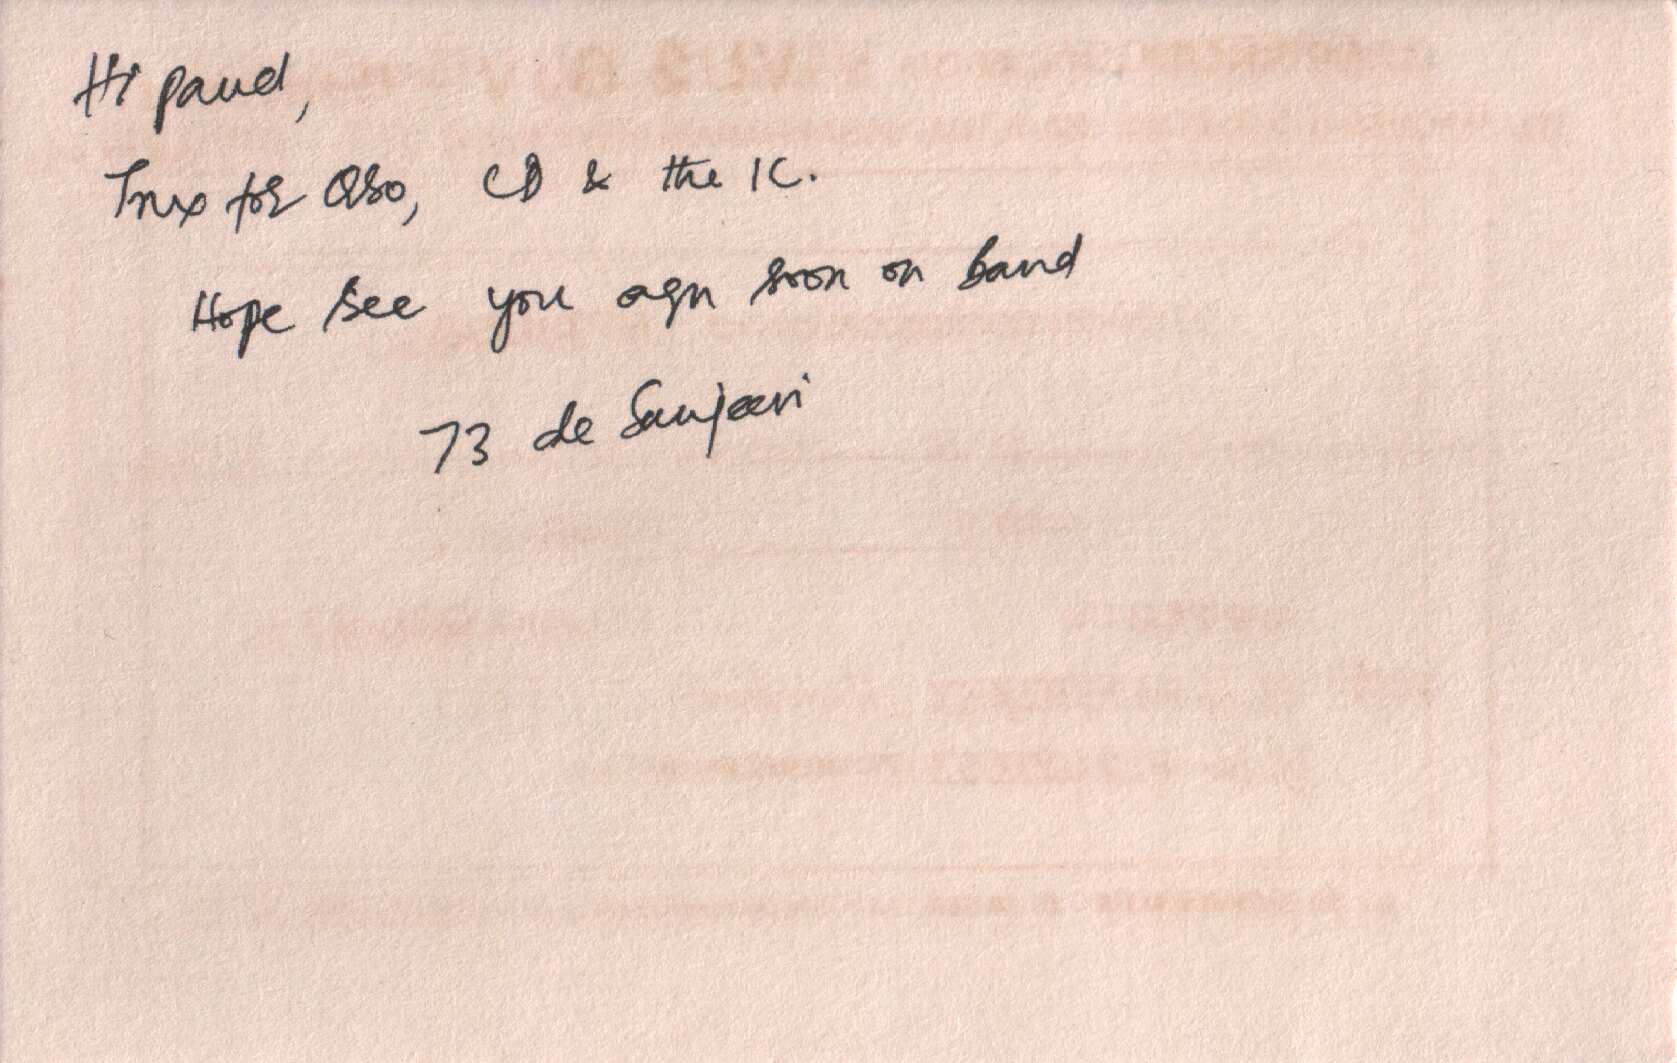 Hi paud,
Tnx for QSO, CD & the IC.
Hope see you agn soon on band
73 de Sanjeevi